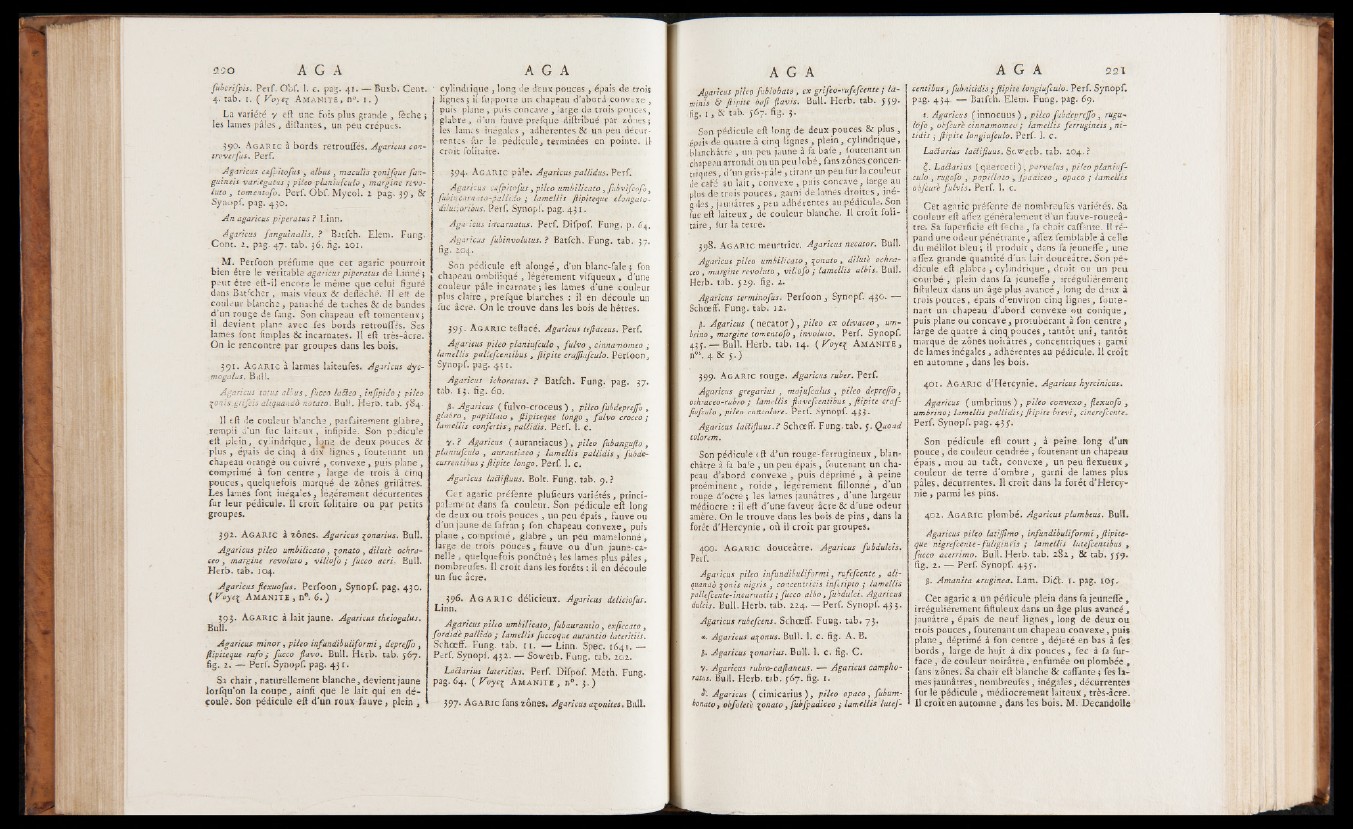 220 A G A
subcrispis. Pers. Obs. l. c. pag. 41. — Buxb. Cent.
4. tab. 1. ( Voyez AMANITE, n°. 1. )
La variété γ est une fois plus grande, sèche ;
les lames pâles, distantes, un peu crépues.
390. AGARIC à bords retroussés. Agaricus con-
troversus. Pers.
Agaricus cæspitosus, albus, maculis zonisque san-
guineis variegatus ; pileo planiusculo, margine revo-
luto, tomentoso. Pers. Obs. Mycol. 2 pag. 39, &
Synops. pag. 430.
An agaricus piperatus ? Linn.
Agaricus sanguinalis. ? Batsch. Elem. Fung.
Cont. 2, pag. 47. tab. 36. fig. 201.
M. Persoon présume que cet agaric pourroit
bien être le véritable agaricus piperatus de Linné ;
peut être est-il encore le même que celui figuré
dans Batscher, mais vieux & desséché. Il est de
couleur blanche, panaché de taches & de bandes
d'un rouge de sang. Son chapeau est tomenteux ;
il devient plane avec ses bords retroussés. Ses
lames sont simples & incarnates. Il est très-âcre.
On le rencontre par groupes dans les bois.
391. AGARIC à larmes laiteuses. Agaricus dys-
mogalus. Bull.
Agaricus totus albus, succo lacteo, insipido ; pileo
zonis griseis aliquando notato. Bull. Herb. tab. 584.
Il est de couleur blanche, parfaitement glabre,
rempli d'un suc laiteux, insipide. Son pédicule
est plein, cylindrique, long de deux pouces &
plus, épais de cinq à dix lignes, soutenant un
chapeau orangé ou cuivré, convexe, puis plane,
comprimé à son centre, large de trois à cinq
pouces, quelquefois marqué de zônes grisâtres.
Les lames sont inégales, légérement décurrentes
sur leur pédicule. Il croît solitaire ou par petits
groupes.
392. AGARIC à zônes. Agaricus zonarius. Bull.
Agaricus pileo umbilicato, zonato, dilutè ochra-
ceo, margine revoluto, villoso ; succo acri. Bull.
Herb. tab. 104.
Agaricus flexuosus. Persoon, Synops. pag. 430.
( Voyez AMANITE, n°. 6. )
393. AGARIC à lait jaune. Agaricus theiogalus.
Bull.
Agaricus minor, pileo infundibuliformi, depresso,
stipiteque rufo ; succo flavo. Bull. Herb. tab. 567.
fig. 2. — Pers. Synops. pag. 431.
Sa chair, naturellement blanche, devient jaune
lorsqu'on la coupe, ainsi que le lait qui en dé-
coule. Son pédicule est d'un roux fauve, plein,
A G A
cylindrique, long de deux pouces, épais de trois
lignes ; il supporte un chapeau d'abord convexe,
puis plane, puis concave, large de trois pouces,
glabre, d'un fauve presque distribué par zônes ;
les lames inégales, adhérentes & un peu décur-
rentes sur le pédicule, terminées en pointe. Il
croît solitaire.
394. AGARIC pâle. Agaricus pallidus. Pers.
Agaricus cæspitosus, pileo umbilicato, subviscoso,
subincarnato-pallido ; lamellis stipiteque elongato-
dilutioribus. Pers. Synops. pag. 431.
Agaricus incarnatus. Pers. Dispos. Fung. p. 64.
Agaricus subinvolutus. ? Batsch. Fung. tab. 37.
fig. 204.
Son pédicule est alongé, d'un blanc-sale ; son
chapeau ombiliqué, légérement visqueux, d'une
couleur pâle incarnate ; les lames d'une couleur
plus claire, presque blanches : il en découle un
suc âcre. On le trouve dans les bois de hêtres.
395. AGARIC testacé. Agaricus testaceus. Pers.
Agaricus pileo planiusculo, fulvo, cinnamomeo ;
lamellis pallescentibus, stipite crassiusculo. Persoon,
Synops. pag. 431.
Agaricus ichoratus. ? Batsch. Fung. pag. 37.
tab. 13. fig. 60.
β. Agaricus ( fulvo-croceus ), pileo subdepresso,
glabro, papillato, stipiteque longo, fulvo croceo ;
lamellis confertis, pallidis. Pers. l. c.
γ. ? Agaricus ( aurantiacus ), pileo subangusto,
planiusculo, aurantiaco ; lamellis pallidis, subde-
currentibus ; stipite longo. Pers. l. c.
Agaricus lactifluus. Bolt. Fung. tab. 9. ?
Cet agaric présente plusieurs variétés, princi-
palement dans sa couleur. Son pédicule est long
de deux ou trois pouces, un peu épais, fauve ou
d'un jaune de safran ; son chapeau convexe, puis
plane, comprimé, glabre, un peu mamelonné,
large de trois pouces, fauve ou d'un jaune-ca-
nelle, quelquefois ponctué ; les lames plus pâles,
nombreuses. Il croît dans les forêts : il en découle
un suc âcre.
396. AGARIC délicieux. Agaricus deliciosus.
Linn.
Agaricus pileo umbilicato, subaurantio, exsiccato,
sordidè pallido ; lamellis succoque aurantio lateritiis.
Schœff. Fung. tab. 11. — Linn. Spec. 1641. —
Pers. Synops. 432. — Sowerb. Fung. tab. 202.
Lactarius lateritius. Pers. Dispos. Meth. Fung.
pag. 64. ( Voyez AMANITE, n°. 3. )
397. AGARIC sans zônes. Agaricus azonites. Bull.
A G A
Agaricus pileo sublobato, ex griseo-rufescente ; la-
minis & stipite basi flavis. Bull. Herb. tab. 559.
fig. 1, & tab. 567. fig. 3.
Son pédicule est long de deux pouces & plus,
épais de quatre à cinq lignes, plein, cylindrique,
blanchâtre, un peu jaune à sa base, soutenant un
chapeau arrondi ou un peu lobé, sans zônes concen-
triques, d'un gris-pâle, tirant un peu sur la couleur
de café au lait, convexe, puis concave, large au
plus de trois pouces, garni de lames droites, iné-
gales, jaunâtres, peu adhérentes au pédicule. Son
suc est laiteux, de couleur blanche. Il croît soli-
taire, sur la terre.
398. AGARIC meurtrier. Agaricus necator. Bull.
Agaricus pileo umbilicato, zonato, dilutè ochra-
ceo, margine revoluto, villoso ; lamellis albis. Bull.
Herb. tab. 529. fig. 2.
Agaricus terminosus. Persoon, Synops. 430. —
Schœff. Fung. tab. 12.
β. Agaricus ( necator ), pileo ex olivaceo, um-
brino, margine tomentoso, involuto. Pers. Synops.
435. — Bull. Herb. tab. 14. ( Voyez AMANITE,
nos. 4 & 5. )
399. AGARIC rouge. Agaricus ruber. Pers.
Agaricus gregarius, majusculus, pileo depresso,
ochraceo-rubro ; lamellis flavescentibus, stipite cras-
siusculo, pileo concolore. Pers. Synops. 433.
Agaricus lactifluus. ? Schœff. Fung. tab. 5. Quoad
colorem.
Son pédicule est d'un rouge-ferrugineux, blan-
châtre à sa base, un peu épais, soutenant un cha-
peau d'abord convexe, puis déprimé, à peine
proéminent, roide, légérement sillonné, d'un
rouge d'ocre ; les lames jaunâtres, d'une largeur
médiocre : il est d'une saveur âcre & d'une odeur
amère. On le trouve dans les bois de pins, dans la
forêt d'Hercynie, où il croît par groupes.
400. AGARIC douceâtre. Agaricus subdulcis.
Pers.
Agaricus pileo infundibuliformi, rufescente, ali-
quandò zonis nigris, concentricis inscripto ; lamellis
pallescente-incarnatis ; succo albo, subdulci. Agaricus
dulcis. Bull. Herb. tab. 224. — Pers. Synops. 433.
Agaricus rubescens. Schœff. Fung. tab. 73.
α. Agaricus azonus. Bull. l. c. fig. A. B.
β. Agaricus zonarius. Bull. l. c. fig. C.
γ. Agaricus rubro-castaneus. — Agaricus campho-
ratus. Bull. Herb. tab. 567. fig. 1.
δ. Agaricus ( cimicarius ), pileo opaco, subum-
bonato, obsoletè zonato, subspadiceo ; lamellis lutes-
A G A 221
centibus, subnitidis ; stipite longiusculo. Pers. Synops.
pag. 434. — Batsch. Elem. Fung. pag. 69.
ε. Agaricus ( innocuus ), pileo subdepresso, rugu-
loso, obscurè cinnamomeo ; lamellis ferrugineis, ni-
tidis ; stipite longiusculo. Pers. l. c.
Lactarius lactifluus. Sowerb. tab. 204. ?
ζ. Lactarius ( querceti ), parvulus, pileo planius-
culo, rugoso, papillato, spadiceo, opaco ; lamellis
obscurè fulvis. Pers. l. c.
Cet agaric présente de nombreuses variétés. Sa
couleur est assez généralement d'un fauve-rougeâ-
tre. Sa superficie est sèche, sa chair cassante. Il ré-
pand une odeur pénétrante, assez semblable à celle
du mélilot bleu ; il produit, dans sa jeunesse, une
assez grande quantité d'un lait douceâtre. Son pé-
dicule est glabre, cylindrique, droit ou un peu
courbé, plein dans sa jeunesse, irréguliérement
fistuleux dans un âge plus avancé, long de deux à
trois pouces, épais d'environ cinq lignes, soute-
nant un chapeau d'abord convexe ou conique,
puis plane ou concave, protubérant à son centre,
large de quatre à cinq pouces, tantôt uni, tantôt
marqué de zônes noirâtres, concentriques ; garni
de lames inégales, adhérentes au pédicule. Il croît
en automne, dans les bois.
401. AGARIC d'Hercynie. Agaricus hyrcinicus.
Agaricus ( umbrinus ), pileo convexo, flexuoso,
umbrino ; lamellis pallidis ; stipite brevi, cinerescente.
Pers. Synops. pag. 435.
Son pédicule est court, à peine long d'un
pouce, de couleur cendrée, soutenant un chapeau
épais, mou au tact, convexe, un peu flexueux,
couleur de terre d'ombre, garni de lames plus
pâles, decurrentes. Il croît dans la forêt d'Hercy-
nie, parmi les pins.
402. AGARIC plombé. Agaricus plumbeus. Bull.
Agaricus pileo latissimo, infundibuliformi, stipite-
que nigrescente-fuligineis ; lamellis lutescentibus,
succo acerrimo. Bull. Herb. tab. 282, & tab. 559.
fig. 2. — Pers. Synops. 435.
β. Amanita æruginea. Lam. Dict. 1. pag. 105.
Cet agaric a un pédicule plein dans sa jeunesse,
irréguliérement fistuleux dans un âge plus avancé,
jaunâtre, épais de neuf lignes, long de deux ou
trois pouces, soutenant un chapeau convexe, puis
plane, déprimé à son centre, déjeté en bas à ses
bords, large de huit à dix pouces, sec à sa sur-
face, de couleur noirâtre, enfumée ou plombée,
sans zônes. Sa chair est blanche & cassante ; ses la-
mes jaunâtres, nombreuses, inégales, décurrentes
sur le pédicule, médiocrement laiteux, très-âcre.
Il croît en automne, dans les bois. M. Decandolle